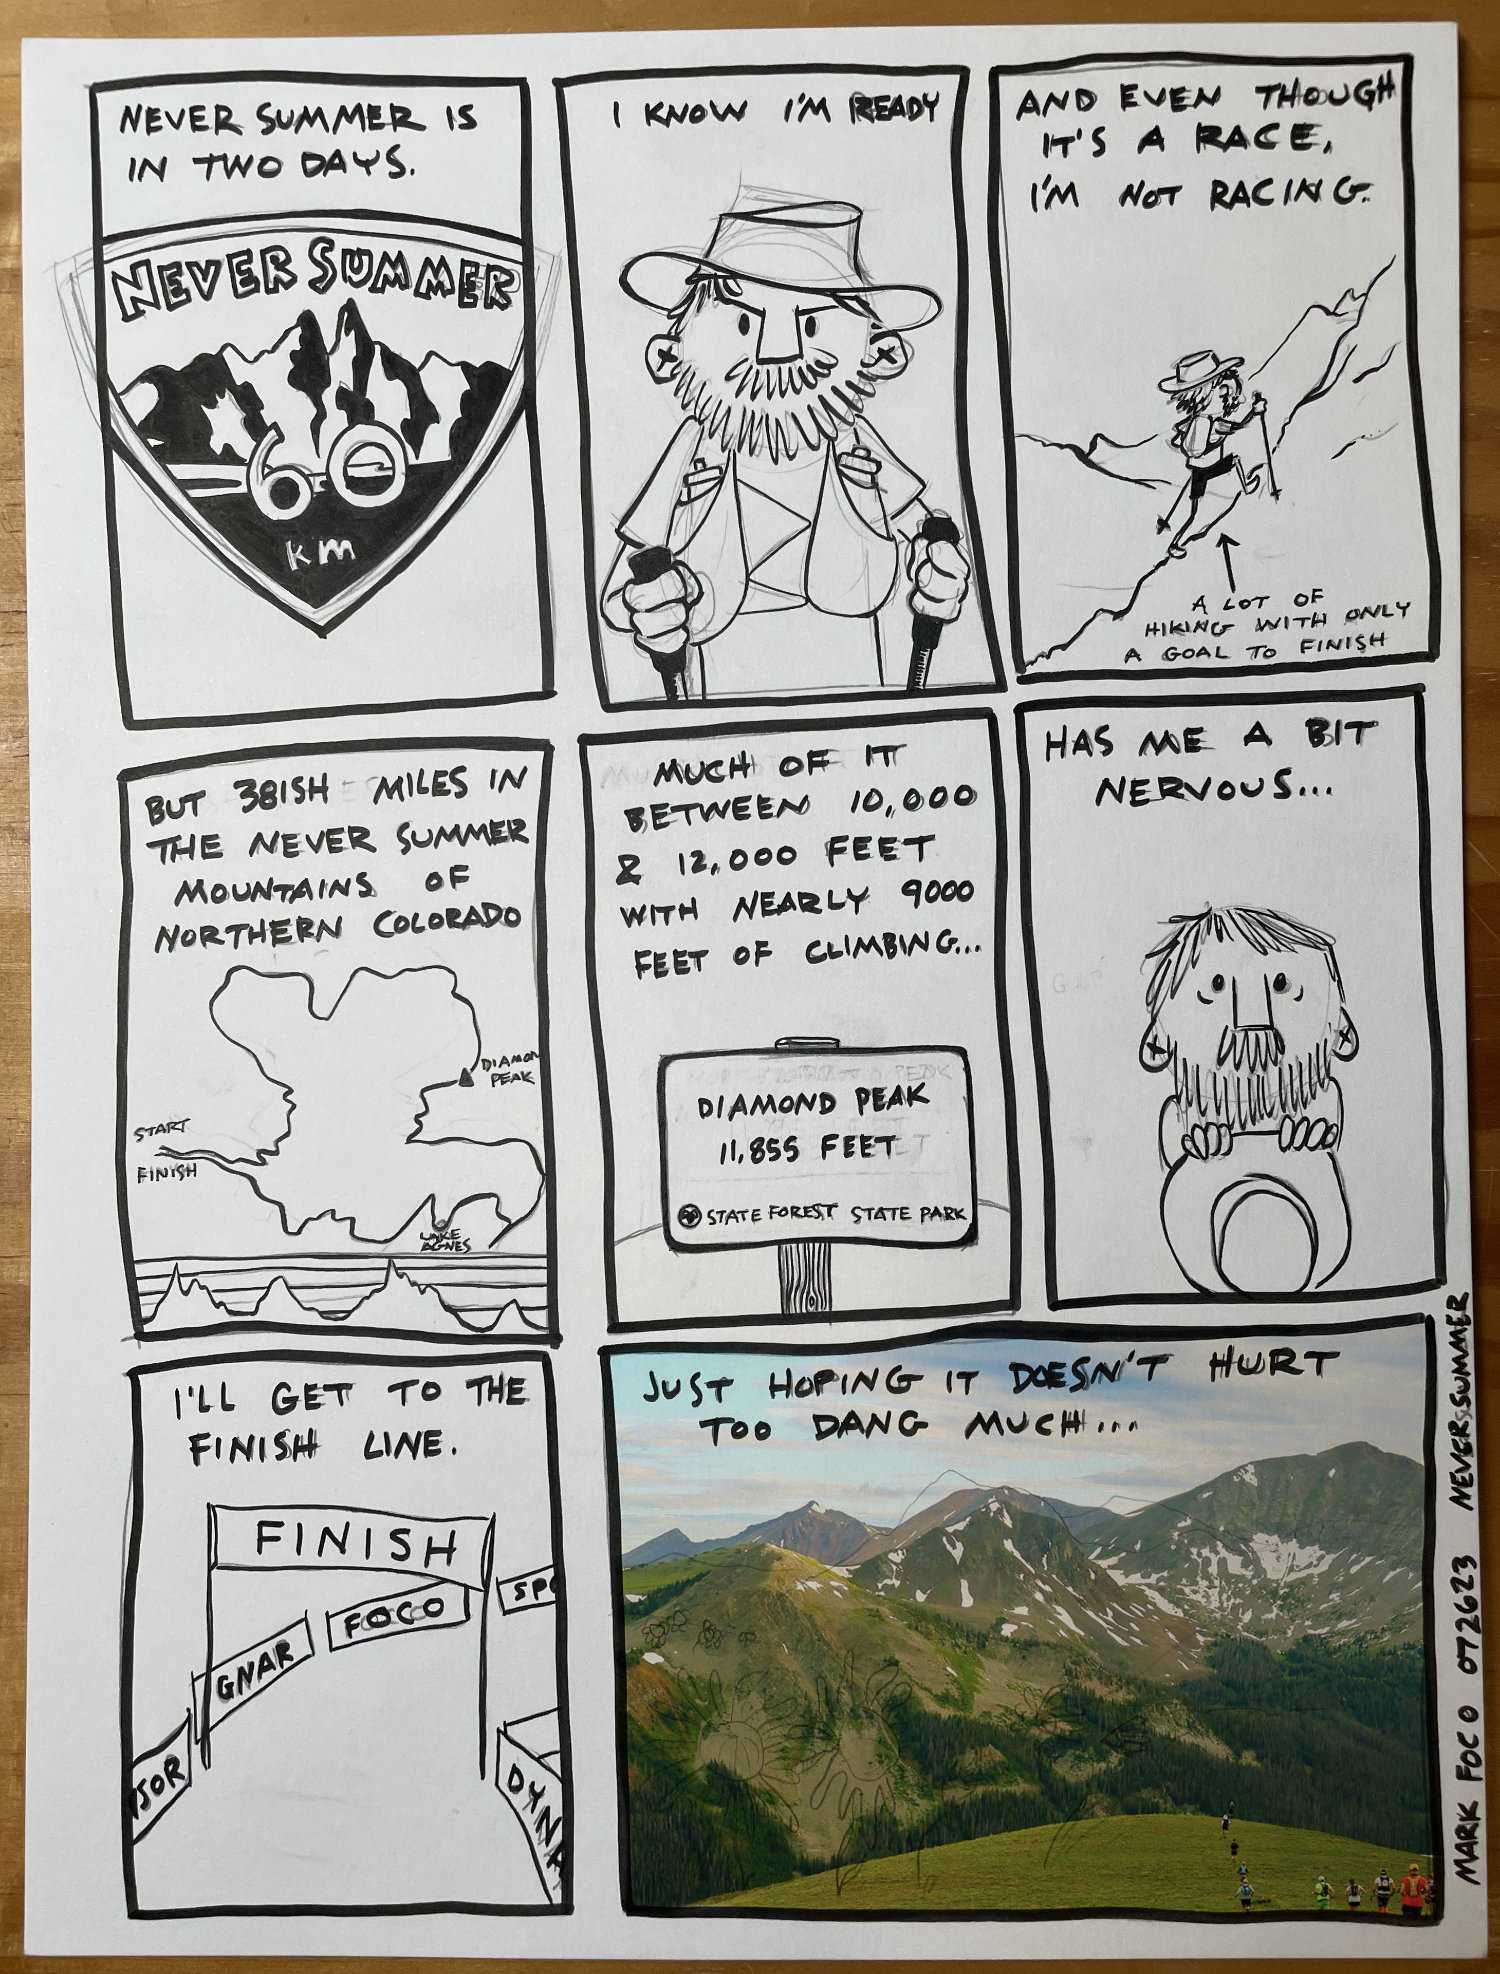 NEVER SUMMER IS
IN TWO DAYS.
NEVER SUMMER
60
km
I KNOW I'M READY
AND EVEN THOUGH
IT'S A RACE,
I'M NOT RACING.
A LOT OF
HIKING WITH ONLY
A GOAL TO FINISH
BUT 38ISH MILES IN
THE NEVER SUMMER
MOUNTAINS OF
NORTHERN COLORADO
DIAMON
PEAK
START
FINISH
LAKE
AGNES
MUCH OF IT
BETWEEN 10,000
& 12,000 FEET
WITH NEARLY 9000
FEET OF CLIMBING...
DIAMOND PEAK
11,855 FEET
STATE FOREST STATE PARK
HAS ME A BIT
NERVOUS...
I'LL GET TO THE
FINISH LINE.
FINISH
SPO
FOCO
GNAR
NSOR
DYNA
JUST HOPING IT DOESN'T HURT
TOO DANG MUCH...
MARK FOCO 072623 NEVERSSUMMER